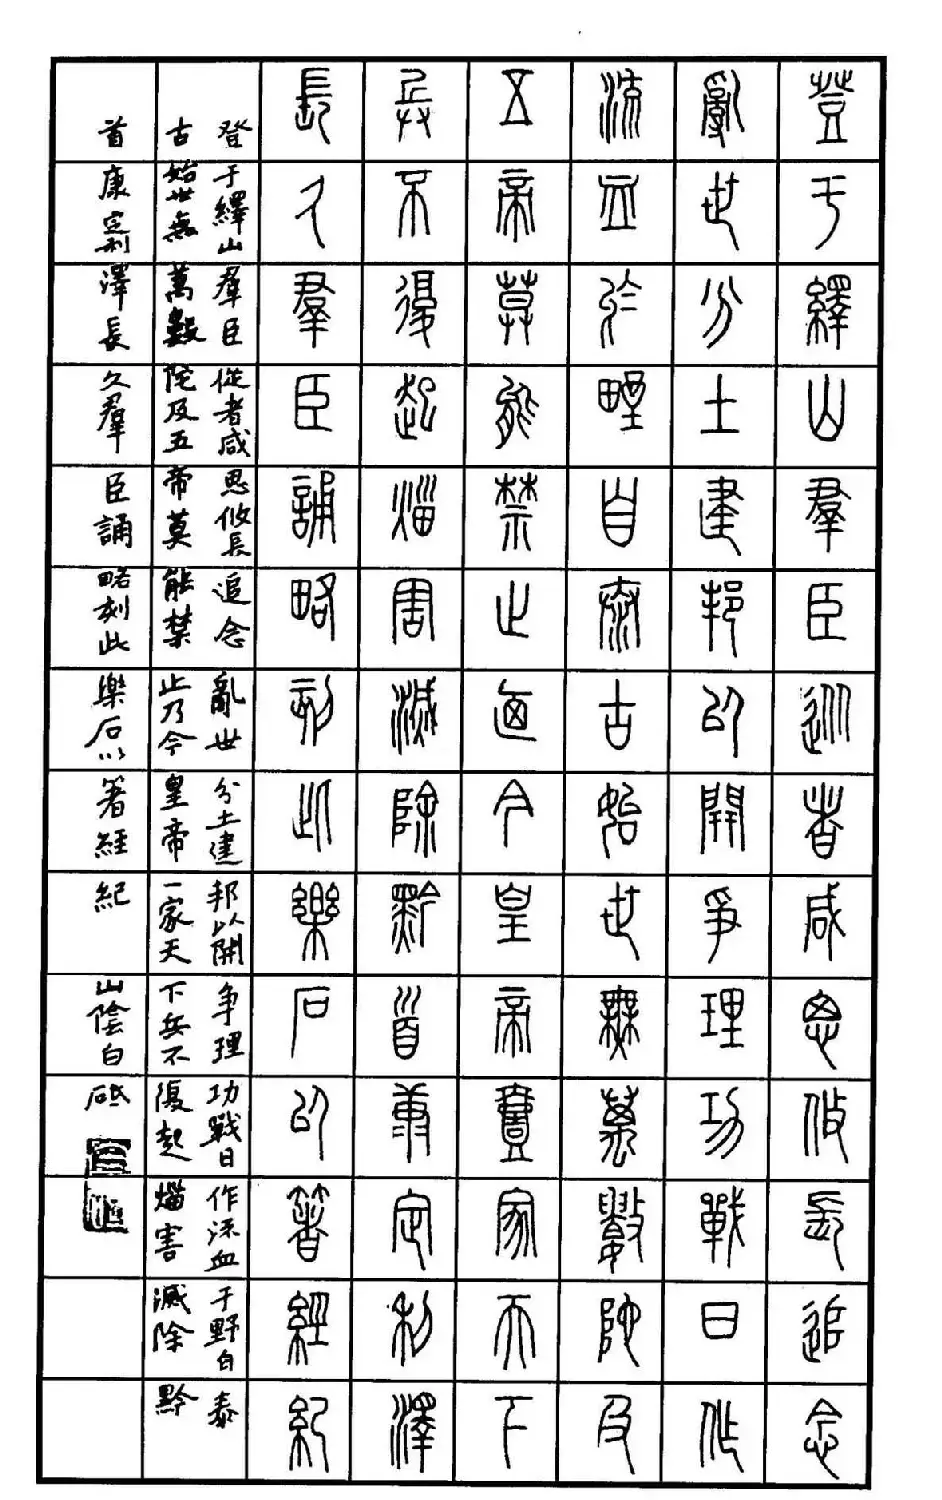 登于繹山羣臣從者咸思攸長追念
亂世分土建邦以開爭理功戰日作
流血於野自泰古始世無萬數陀及
五帝莫能禁止迺今皇帝壹家天下
兵不復起災害滅除黔首康定利澤
長久羣臣誦略刻此樂石以著經紀
登于繹山羣臣從者咸思攸長追念亂世分土建邦以開争理功戰日作流血于野自泰
古始世無萬數陀及五帝莫能禁止乃今皇帝一家天下兵不復起災害滅除黔
首康定利澤長久羣臣誦略刻此樂石以著經紀 山陰白砥